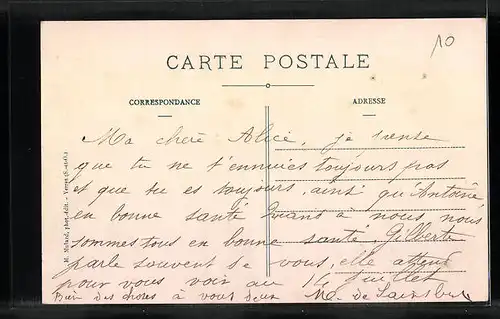 10
CARTE POSTALE
CORRESPONDANCE
ADRESSE
Ma chère Alice, je pense
que tu ne t'ennuies toujours pas
et que tu es toujours, ainsi qu'Antoine
en bonne santé quant à nous, nous
sommes tous en bonne santé. Gilberte
parle souvent de vous, elle attend
pour vous voir au 14 juillet
Bien des choses à vous deux M. de
phot.-édit. - Verpt (S.-et-L.)